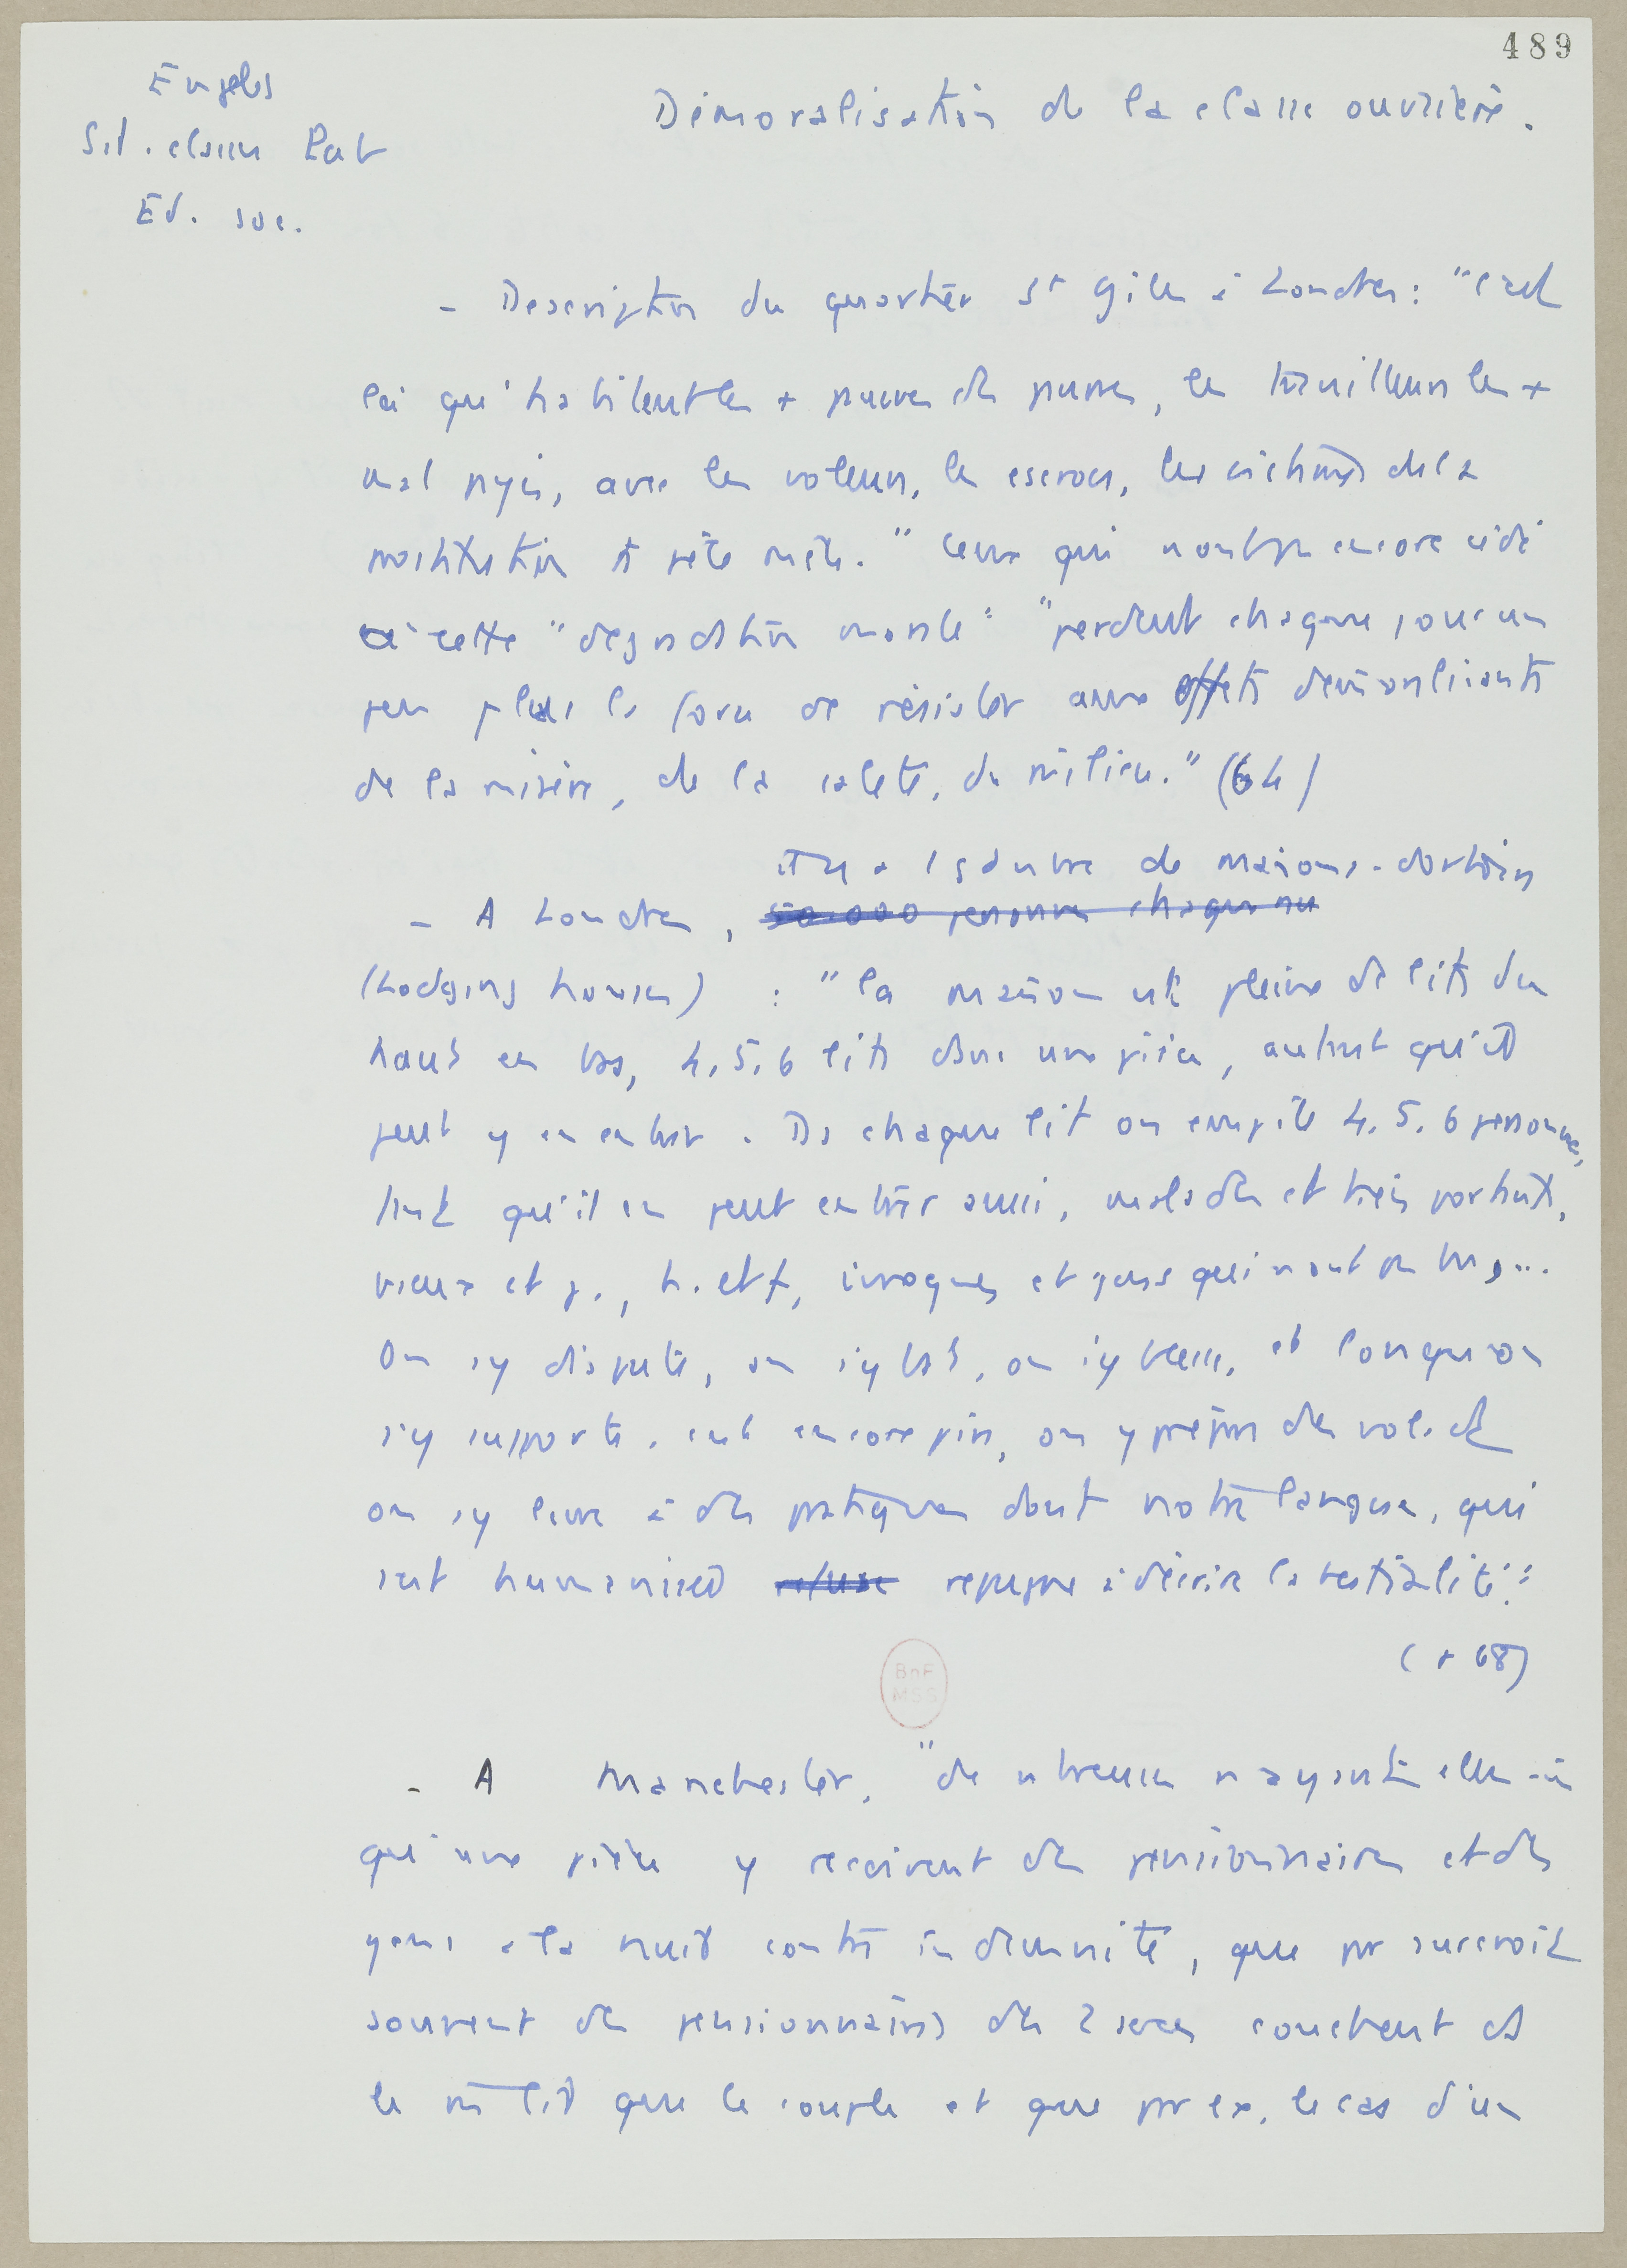 489
Engels
Sit. classe Lab
Ed. soc.
Démoralisation de la classe ouvrière.
- Description du quartier St Giles à Londres : "c'est
là qu'habitent les + pauvres des pauvres, les travailleurs les +
mal payés, avec les voleurs, les escrocs, les victimes de la
prostitution tt pêle mêle." Ceux qui n'ont pas encore cédé
à cette "dégradation morale" "perdent chaque jour un
peu plus la force de résister aux effets démoralisants
de la misère, de la saleté, du milieu." (64)
il y a 1 sdouble de maisons-dortoirs
- A Londres, 50.000 personnes chaque nuit
(Lodging houses) : "la maison est pleine de lits du
haut en bas, 4, 5, 6 lits dans une pièce, autant qu'il
peut y en entrer. Ds chaque lit on empile 4, 5, 6 personnes,
tant qu'il en peut entrer aussi, malades et bien portants,
vieux et j., h. et f, ivrognes et gens qui n'ont pas bu, ...
On s'y dispute, on s'y bat, on s'y blesse, et lorsqu'on
s'y supporte, c'est encore pire, on y prépare des vols et
on s'y livre à des pratiques dont notre langue, qui
s'est humanisée refuse répugne à décrire la bestialité."
(p 68)
BnF
MSS
- A Manchester, "de nbreuses n'ayant elles-m
qu'une pièce y reçoivent des pensionnaires et des
gens à la nuit contre indemnité, que par surcroît
souvent des pensionnaires des 2 sexes couchent ds
le m lit que le couple et que par ex. le cas d'un